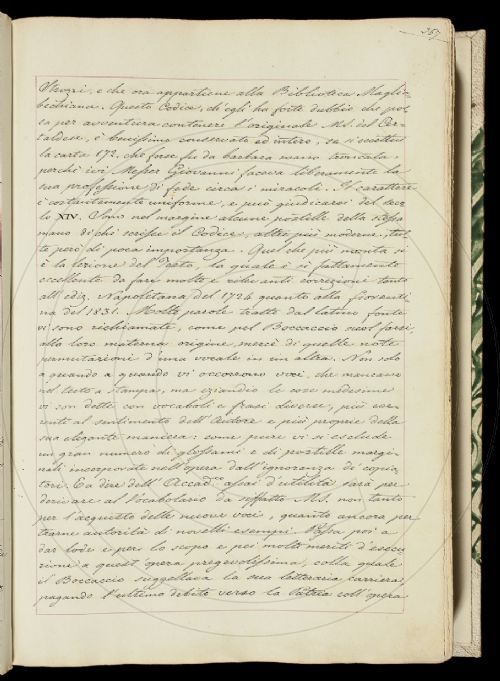 367
Strozzi, e che ora appartiene alla Biblioteca Maglia-
bechiana. Questo Codice, ch'egli ha forte dubbio che pos-
sa per avventura contenere l'originale Ms. del Cer-
taldese, è benissimo conservato ed intero, se si eccettui
la carta 172. che forse fu da barbara mano troncata
perchè ivi Messer Giovanni faceva liberamente la
sua professione di fede circa i miracoli. Il carattere
è costantemente uniforme, e può giudicarsi del seco-
lo XIV. Sono nel margine alcune postille della stessa
mano di chi scrisse il Codice, altre più moderne, tut-
te però di poca importanza. Quel che più monta si
è la lezione del Testo, la quale è sì fattamente
eccellente da fare molte e rilevanti correzioni tanto
all'ediz. Napolitana del 1724 quanto alla fiorenti-
na del 1831. Molte parole tratte dal latino fonte
vi sono richiamate, come pel Boccaccio suol farsi,
alla loro materna origine mercè di quelle note
permutazioni d'una vocale in un altra. Non solo
a quando a quando vi occorrono voci, che mancano
nel testo a stampa, ma eziandio le cose medesime
vi son dette con vocaboli e frasi diverse, più coe-
renti al sentimento dell'Autore e più proprie della
sua elegante maniera: come pure vi si esclude
un gran numero di glossemi e di postille margi-
nali incorporate nell'opera dall'ignoranza di copia-
tori. A dire dell'Accad.co assai d'utilità sarà per
derivare al Vocabolario da siffatto Ms. non tanto
per l'acquisto delle nuove voci, quanto ancora per
trarne autorità di novelli esempi. Passa poi a
dar lode e per lo scopo e pei molti meriti d'esecu-
zione a quest'opera pregevolissima, colla quale
il Boccaccio suggellava la sua letteraria carriera,
pagando l'estremo debito verso la Patria coll'opera